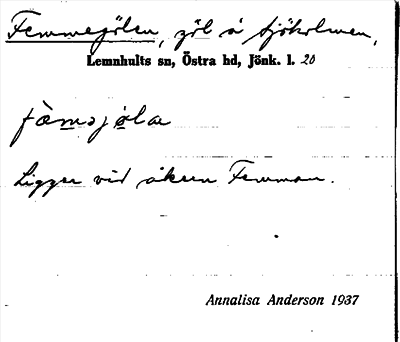 Femmegölen, göl å Sjöholmen,
Lemnhults sn, Östra hd, Jönk. l. 20
fæ̀məjø̀la
Ligger vid åkern Femman.
Annalisa Anderson 1937